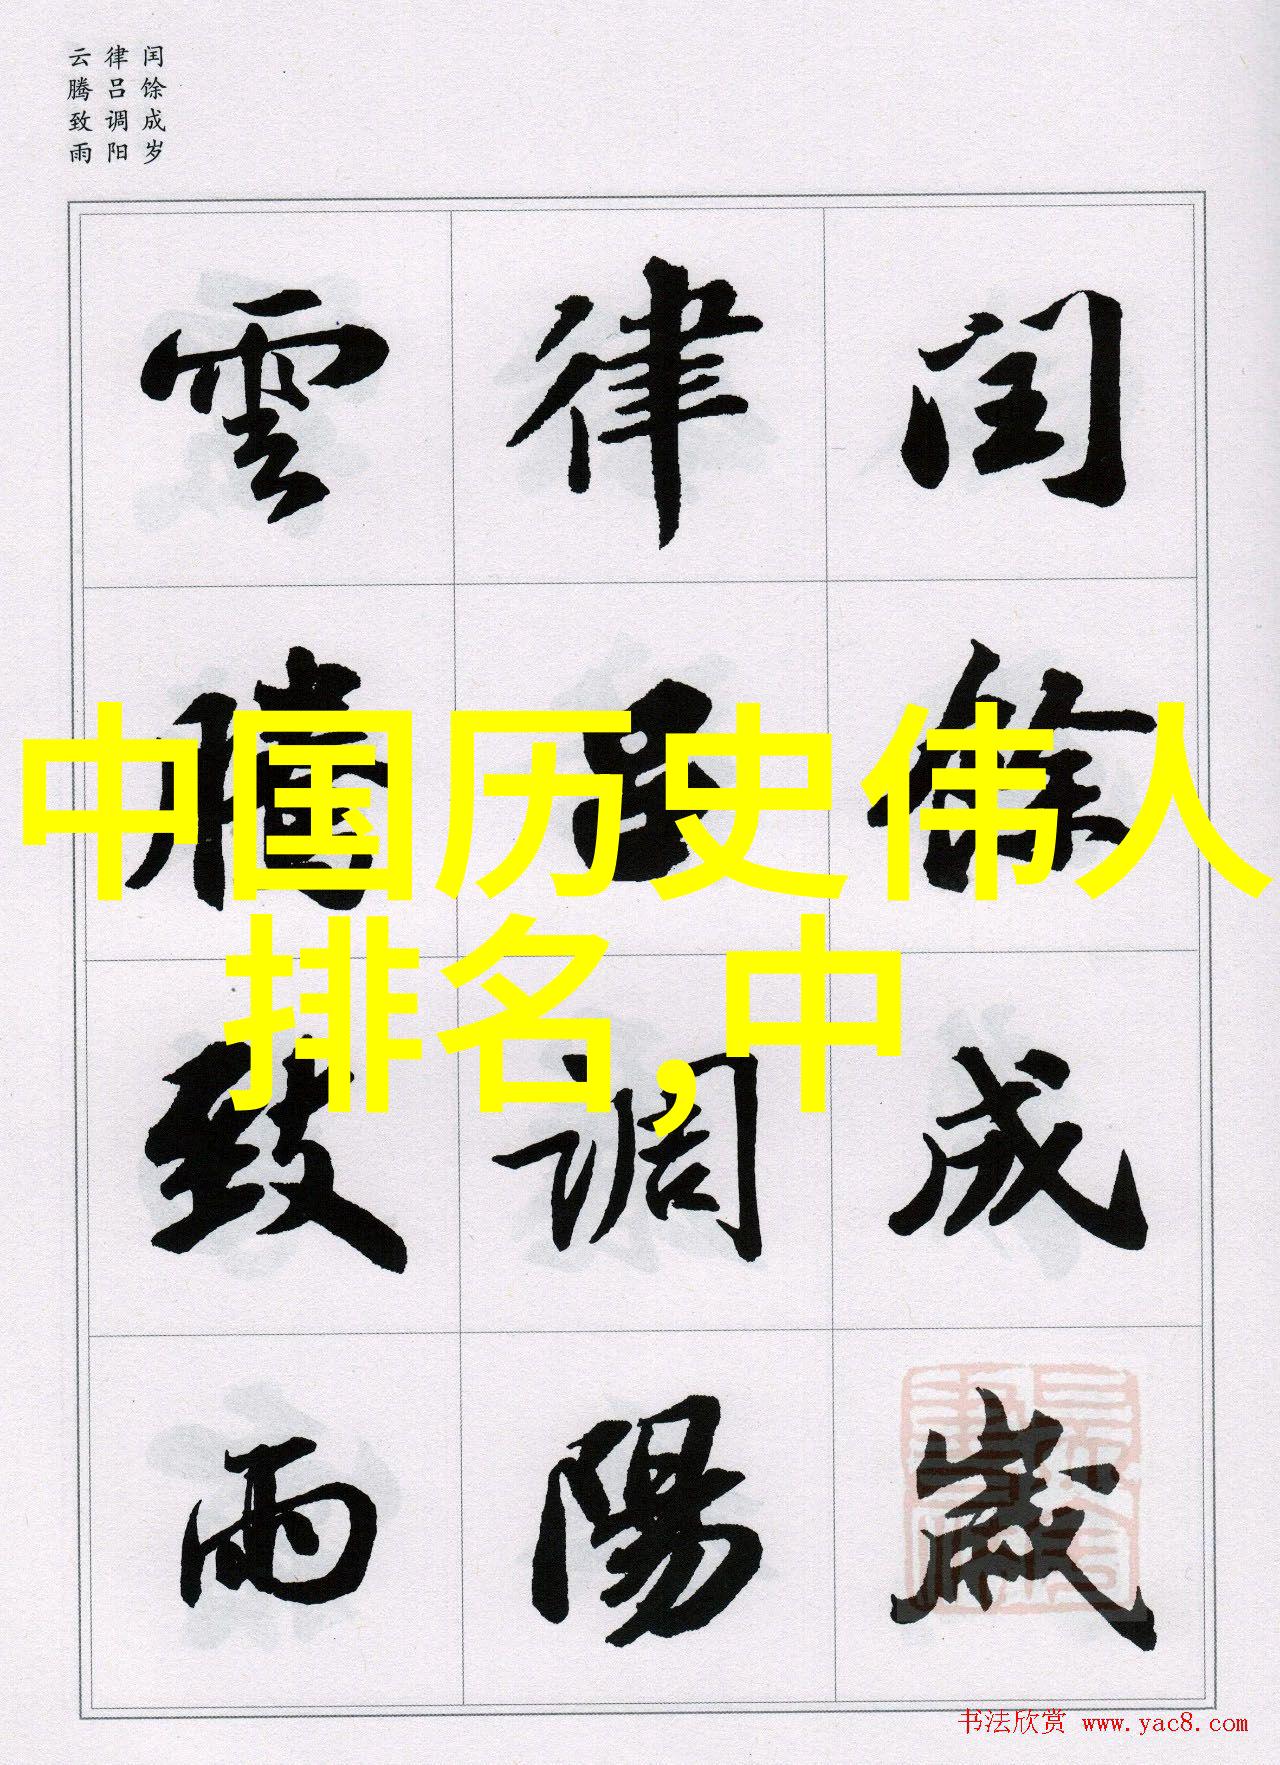 闰馀成岁
律吕调阳
云腾致雨
閏餘成歲
律吕調陽
雲騰致雨
中国历史伟人
排名,中
书法欣赏 www.yac8.com